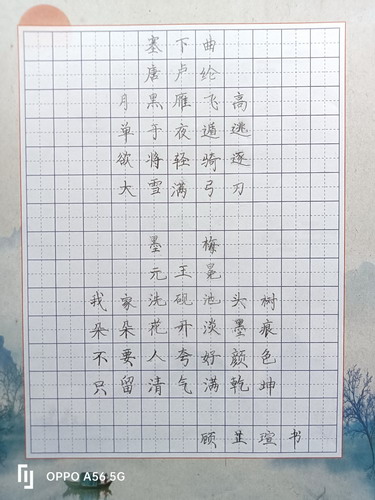 塞下曲
唐 卢纶
月黑雁飞高
单于夜遁逃
欲将轻骑逐
大雪满弓刀
墨梅
元 王冕
我家洗砚池头树
朵朵花开淡墨痕
不要人夸好颜色
只留清气满乾坤
顾芷瑄书
OPPO A56 5G